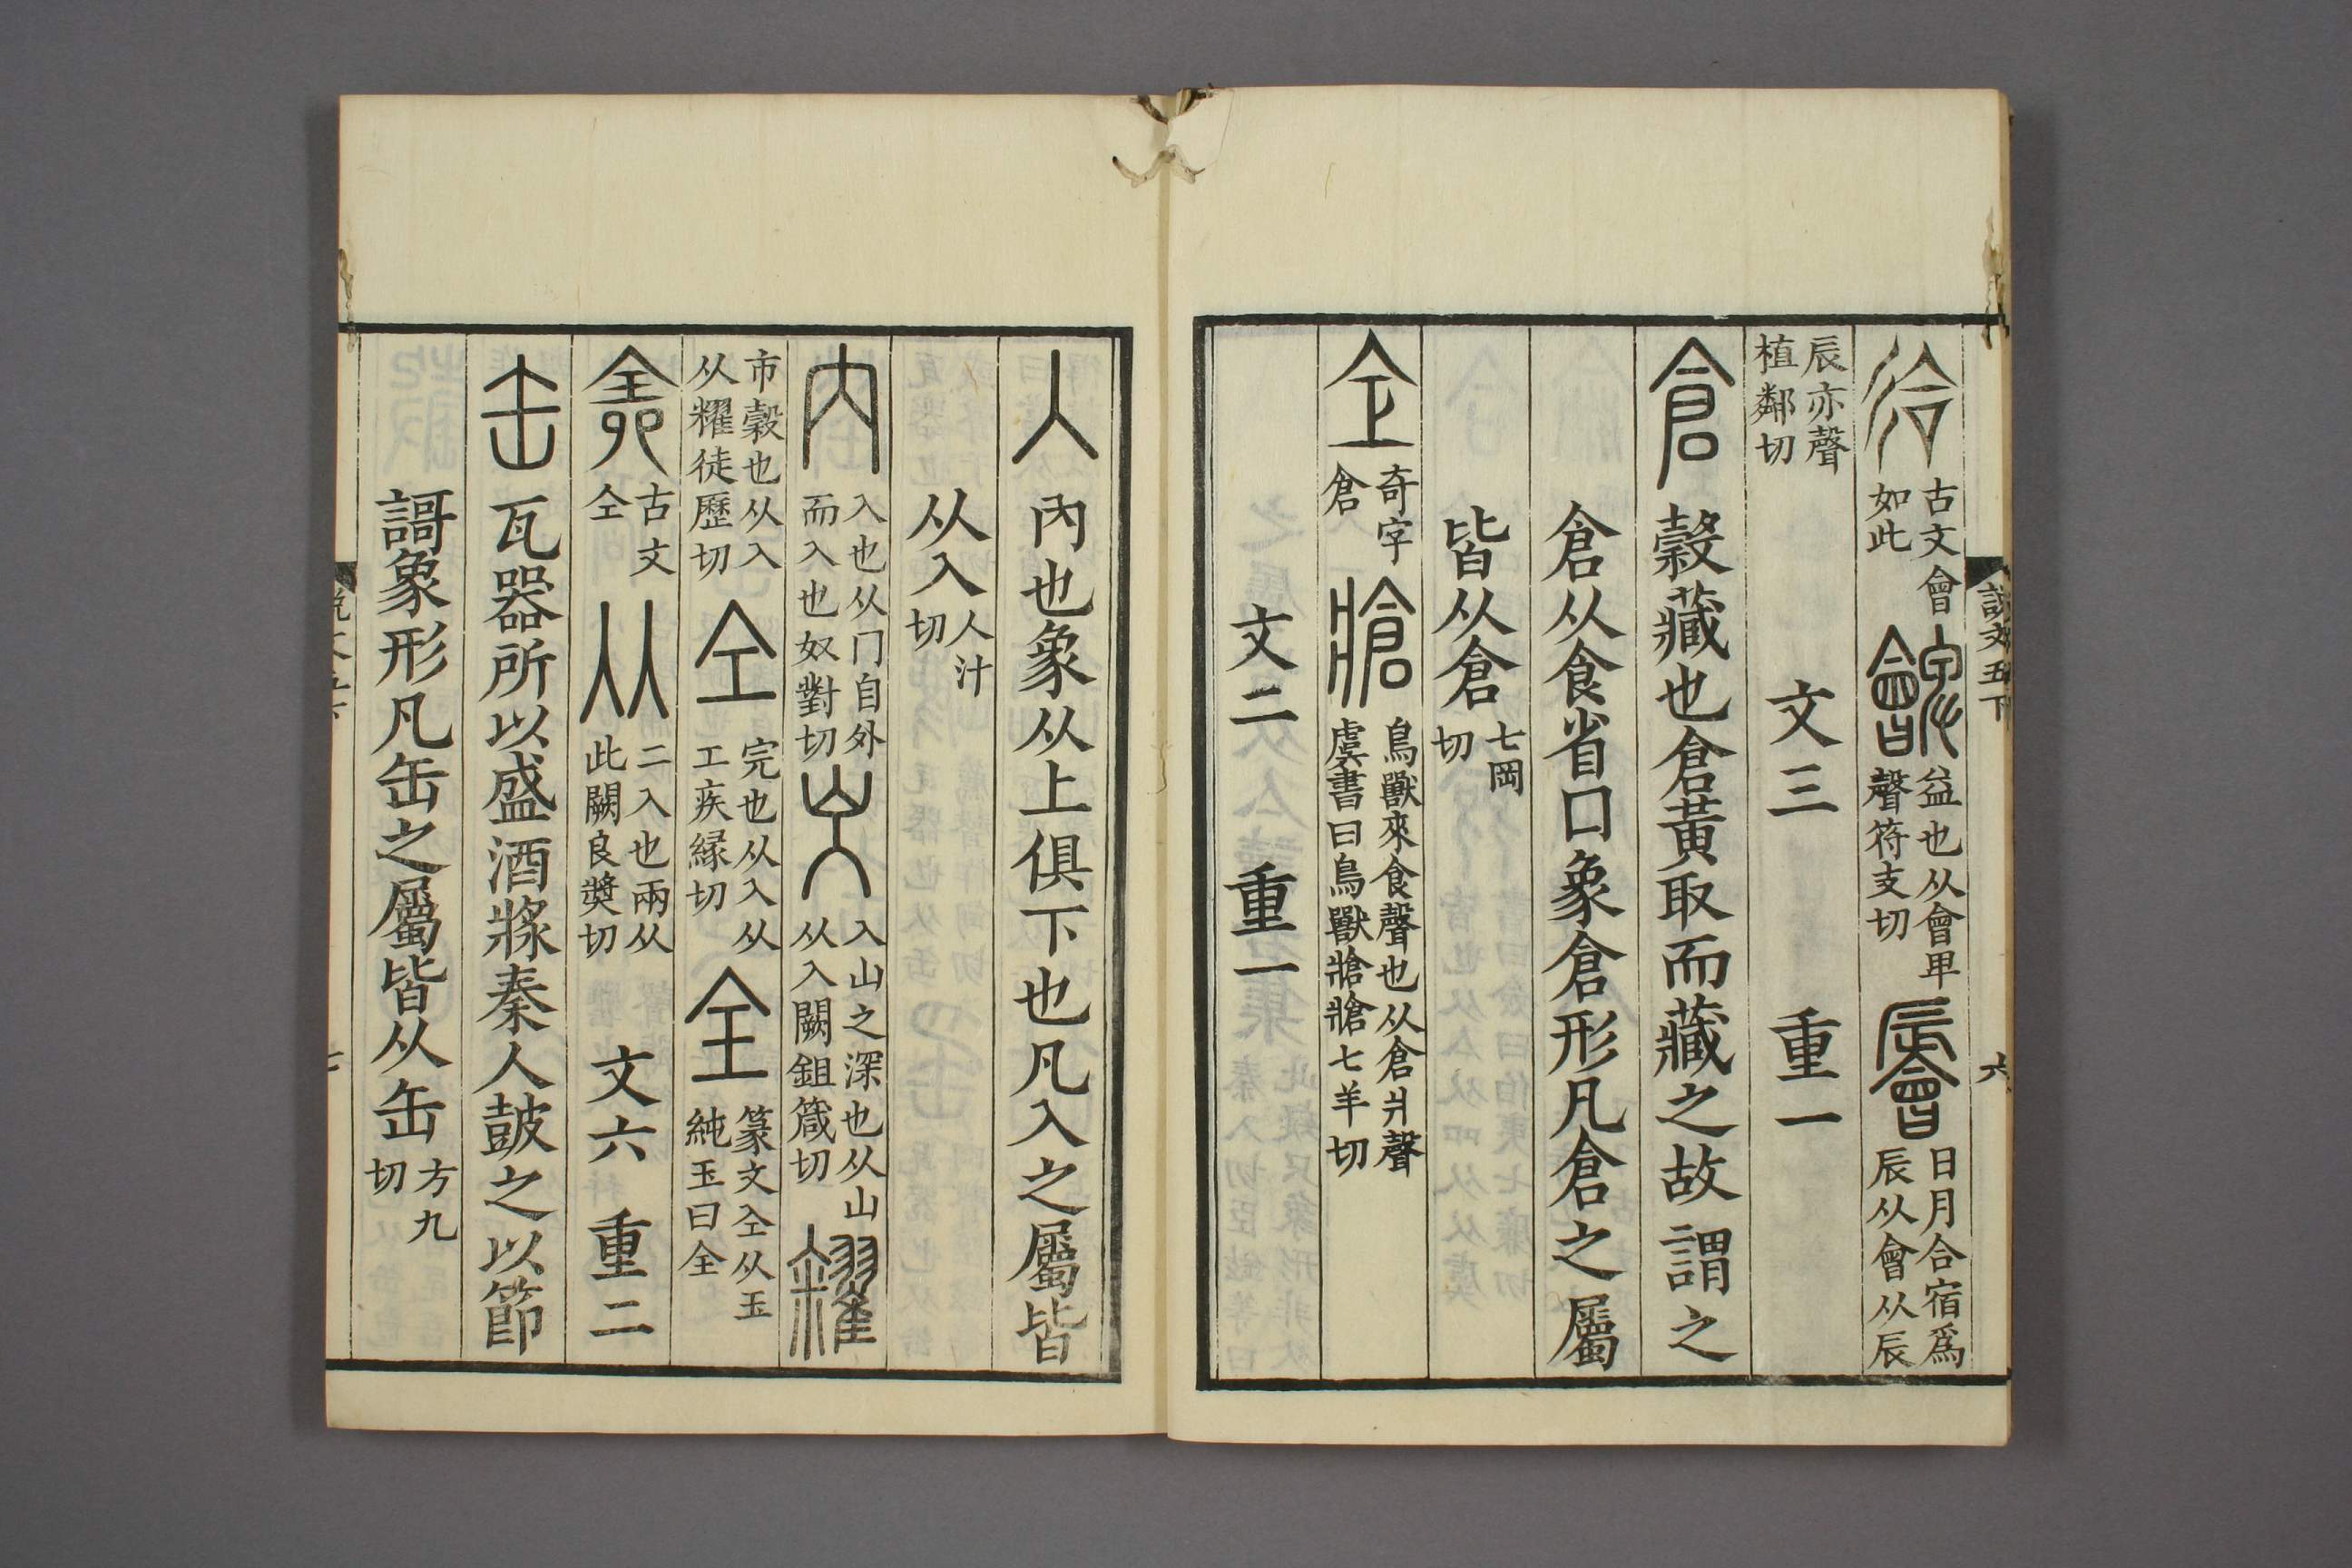 㣛古文會如此䯤益也从會卑聲符支切㬜日月合宿爲辰从會从辰
辰亦聲植鄰切 文三 重一
倉穀藏也倉黃取而藏之故謂之
倉从食省口象倉形凡倉之屬
皆从倉七岡切
仺奇字倉牄鳥獸來食聲也从倉爿聲虞書曰鳥獸牄牄七羊切
文二 重一
說文五下 六
入內也象从上俱下也凡入之屬皆
从入人汁切
內入也从冂自外而入也奴對切㞥入山之深也从山从入闕鉏箴切糴
市穀也从入从䊮徒歷切仝完也从入从工疾緣切全篆文仝从玉純玉曰全
𠓴古文仝㒳二入也兩从此闕良獎切 文六 重二
缶瓦器所以盛酒漿秦人鼓之以節
謌象形凡缶之屬皆从缶方九切